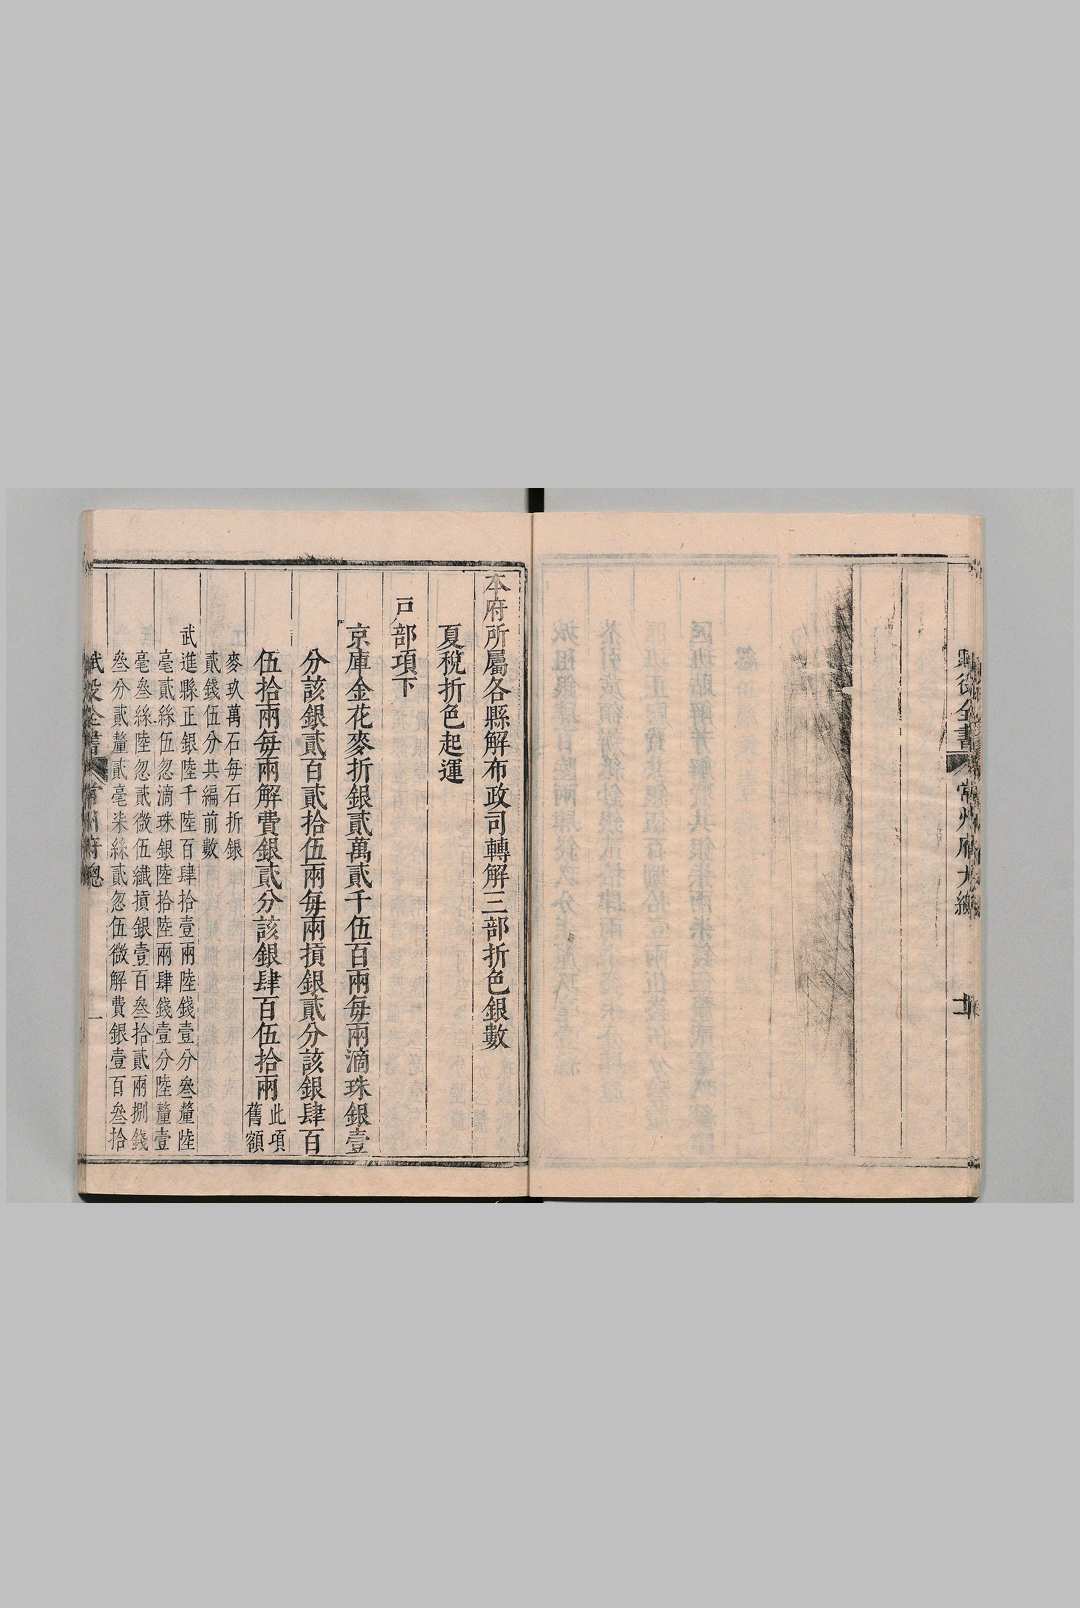 賦役全書 常州府 總
本府所屬各縣解布政司轉解三部折色銀數
夏稅折色起運
戸部項下
京庫金花麥折銀貳萬貳千伍百兩每兩滴珠銀壹
分該銀貳百貳拾伍兩每兩損銀貳分該銀肆百
伍拾兩每兩解費銀貳分該銀肆百伍拾兩此項
舊額
麥玖萬石每石折銀
貳錢伍分共編前數
武進縣正銀陸千陸百肆拾壹兩陸錢壹分叄釐陸
毫貳絲伍忽滴珠銀陸拾陸兩肆錢壹分陸釐壹
毫叄絲陸忽貳微伍纖損銀壹百叄拾貳兩捌錢
叄分貳釐貳毫柒絲貳忽伍微解費銀壹百叄拾
賦役全書 常州府總